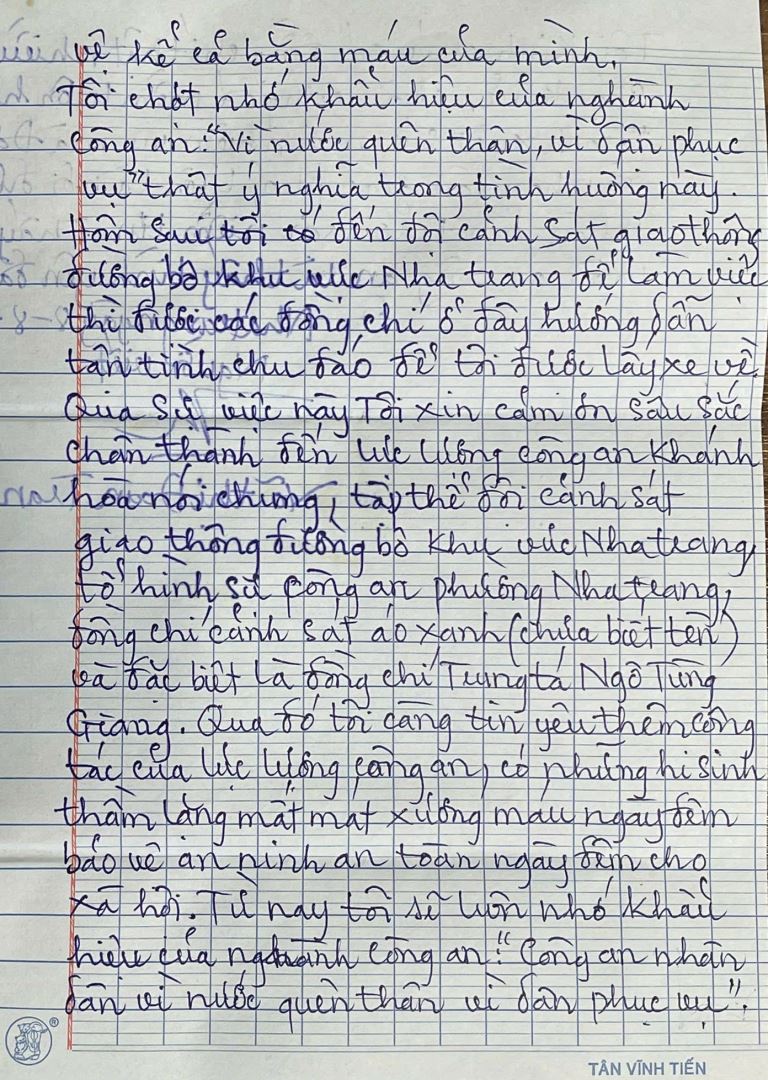 về kể cả bằng máu của mình.
Tôi chợt nhớ khẩu hiệu của nghành
công an: "Vì nước quên thân, vì dân phục
vụ" thật ý nghĩa trong tình huống này.
Hôm sau tôi có đến đội cảnh sát giao thông
đường bộ khu vực Nha trang để làm việc
thì được các đồng chí ở đây hướng dẫn
tận tình chu đáo để tôi được lấy xe về.
Qua sự việc này Tôi xin cảm ơn sâu sắc
chân thành đến lực lượng công an khánh
hòa nói chung, tập thể đội cảnh sát
giao thông đường bộ khu vực Nha trang,
tổ hình sự công an phường Nha trang,
đồng chí cảnh sát áo xanh (chưa biết tên)
và đặc biệt là đồng chí Trung tá Ngô Tùng
Giang. Qua đó tôi càng tin yêu thêm công
tác của lực lượng công an, có những hi sinh
thầm lặng mất mát xương máu ngày đêm
bảo vệ an ninh an toàn ngày đêm cho
xã hội. Từ nay tôi sẽ luôn nhớ khẩu
hiệu của nghành công an: "Công an nhân
dân vì nước quên thân vì dân phục vụ".
TÂN VĨNH TIẾN